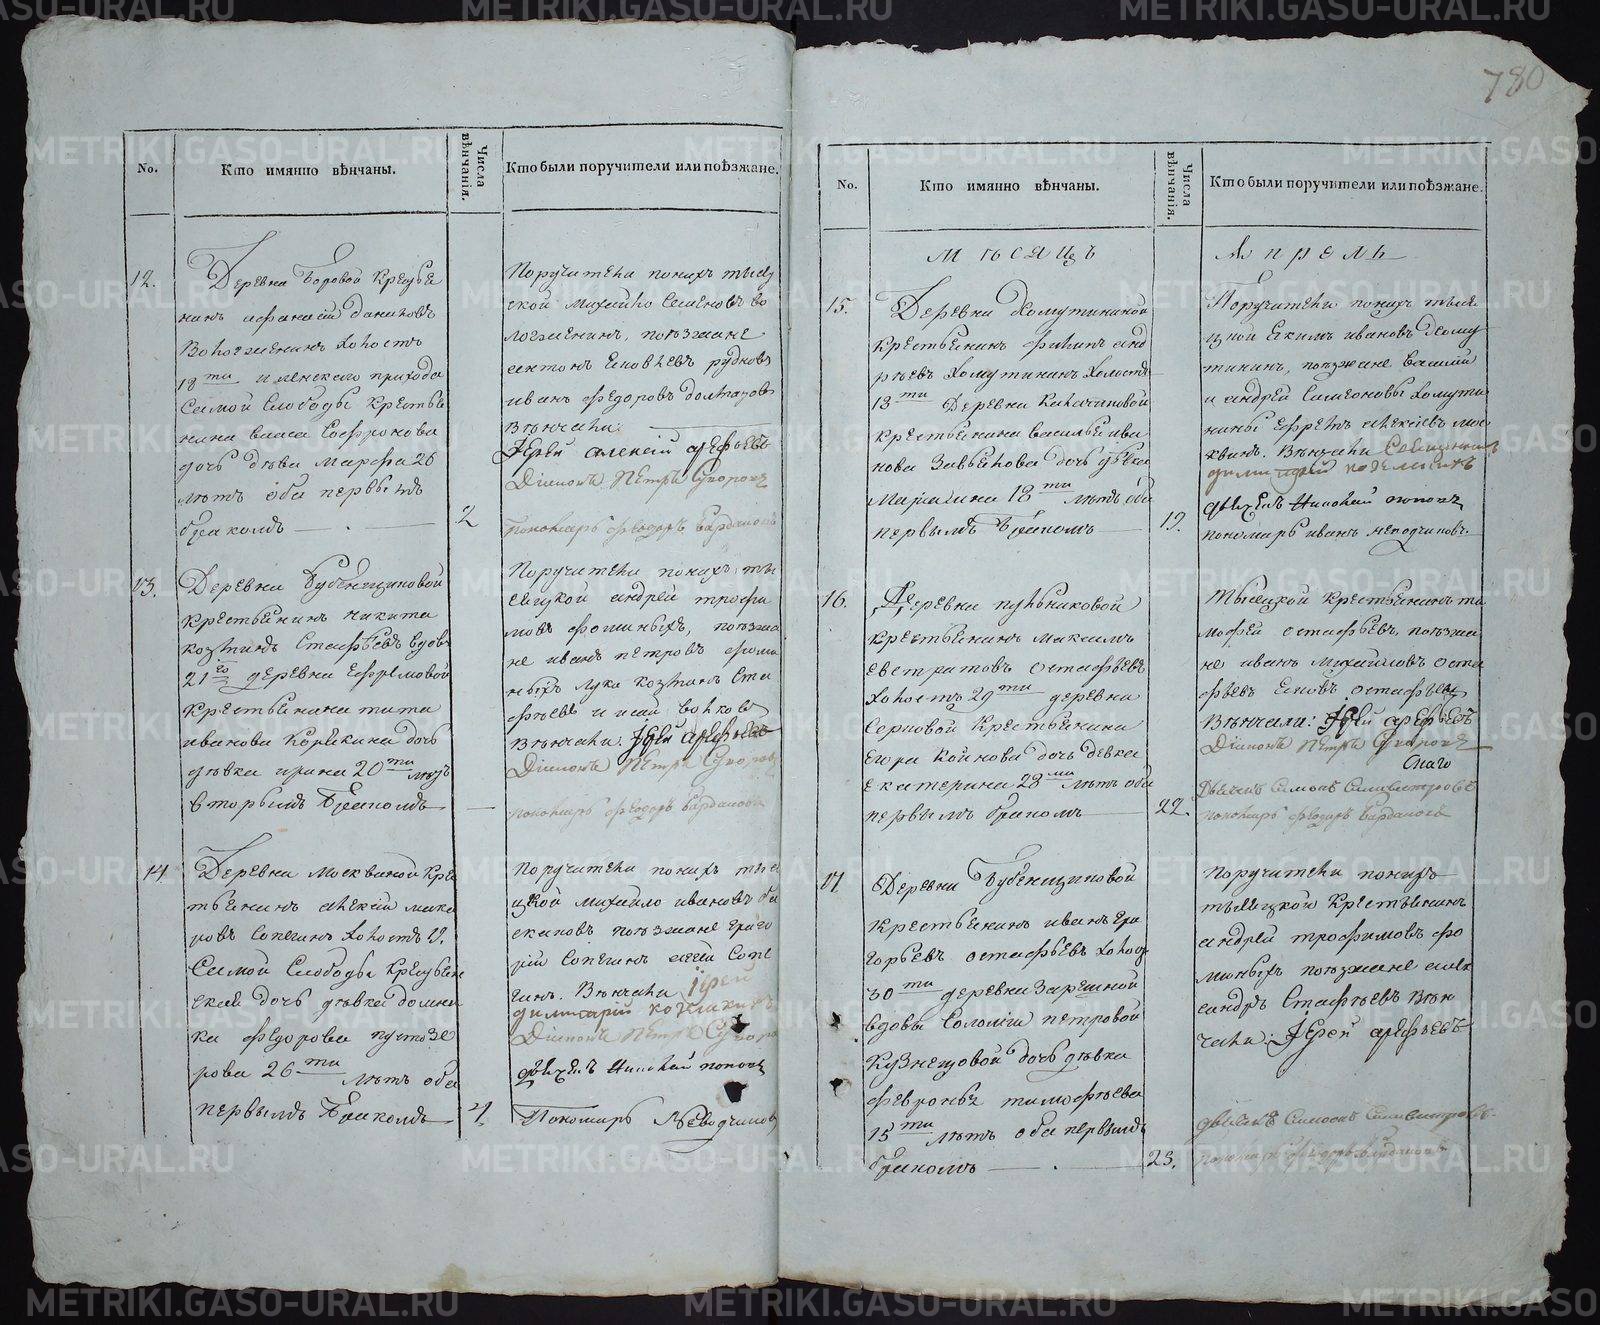 780
No.
Кто имянно вѣнчаны.
Числа вѣнчанія.
Кто были поручители или поѣзжане.
12.
Деревни Боровой Крестья
нинъ Афанасій Даниловъ
Вологженинъ холостъ
18 ти и менского прихода
Самой Слободы крестья
нина Власа Софронова
дочь дѣвка Марфа 26
лѣтъ оба первымъ
бракомъ
2
Поручители по нихъ тысяц
кой Михайло Семеновъ во
логженинъ, поѣзжане
Антонъ Яковлевъ Рудновъ
Иванъ Федоровъ
Вѣнчали:
Іерей Алексій Арефьевъ
Діаконъ Петръ
пономарь Феодоръ
13.
Деревни Бубенщиковой
крестьянинъ Никита
Козминъ Стафѣевъ вдовъ
21 го деревни Ефремовой
крестьянина Тита
Иванова Корякина дочь
дѣвка Ирина 20 ти лѣтъ
вторымъ бракомъ
Поручители по нихъ ты
сяцкой Андрей Трофи
мовъ Фоминыхъ, поѣзжа
не Иванъ Петровъ Фоми
ныхъ Лука Козминъ Ста
фѣевъ и Исай Волковъ
Вѣнчали: Іерей Арефьевъ
Діаконъ Петръ
пономарь Феодоръ
14.
Деревни Москвиной кре
стьянинъ Алексій Мака
ровъ Сопегинъ холостъ 19.
Самой Слободы крестьян
ская дочь дѣвка Домни
ка Федорова Пустозе
рова 26 ти лѣтъ оба
первымъ бракомъ
Поручители по нихъ тыся
цкой Михайло Ивановъ
поѣзжане Григо
рій Сопегинъ
гинъ. Вѣнчали Іерей
Димитрій
Діаконъ Петръ
дьячекъ Николай Поповъ
Пономарь
No.
Кто имянно вѣнчаны.
Числа вѣнчанія.
Кто были поручители или поѣзжане.
Мѣсяцъ
Апрель
15.
Деревни Хомутининой
крестьянинъ Филипъ Анд
рѣевъ Хомутининъ холостъ
18 ти деревни Калачиковой
крестьянина Василья Ива
нова Завьялова дочь дѣвка
Марьяна 18 ти лѣтъ оба
первымъ бракомъ
19.
Поручители по нихъ тыся
цкой Екимъ Ивановъ Хому
тининъ, поѣзжане Василій
и Андрей Симеоновы Хомути
нины Ефремъ Алексіевъ Мос
квинъ. Вѣнчали Священникъ
Димитрій
дьячекъ Николай Поповъ
пономарь Иванъ
16.
Деревни Пульниковой
крестьянинъ Максимъ
Евстратовъ Остафѣевъ
холостъ 29 ти деревни
Серковой крестьянина
Егора Койнова дочь девка
Екатерина 28 ми лѣтъ оба
первымъ бракомъ
22.
Тысяцкой крестьянинъ Ти
мофей Остафьевъ, поѣзжа
не Иванъ Михайловъ Оста
фьевъ Яковъ Остафьевъ
Вѣнчали: Іерей Арефьевъ
Діаконъ Петръ
Дьячекъ Симонъ Силивестровъ
пономарь Феодоръ
17.
Деревни Бубенщиковой
крестьянинъ Иванъ Гри
горьевъ Остафьевъ холост
30 ти деревни Заречной
вдовы Соломіи Петровой
Кузнецовой дочь дѣвка
Февронья Тимофѣева
15 ти лѣтъ оба первымъ
бракомъ
23.
Поручители по нихъ
тысяцкой крестьянинъ
Андрей Трофимовъ Фо
миныхъ поѣзжане Алек
сандръ Стафѣевъ Вѣн
чали: Іерей Арефьевъ
дьячекъ Симонъ Силивестровъ
пономарь Феодоръ